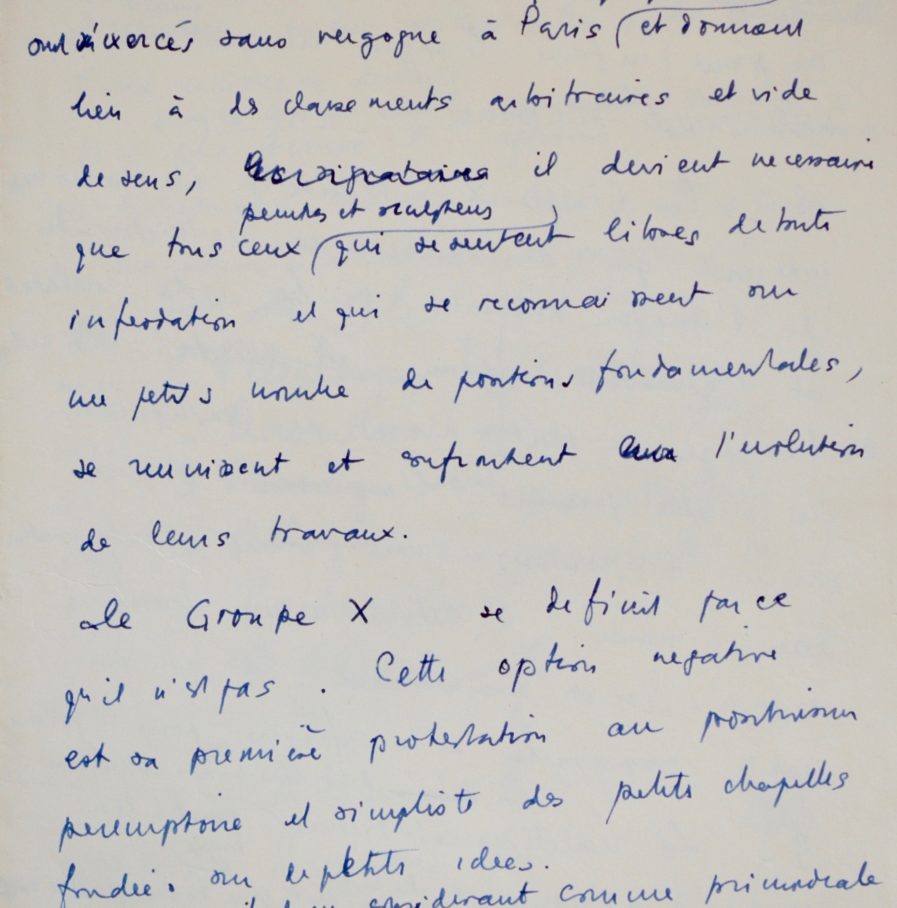 exercés sans vergogne à Paris (et donnant
lieu à des classements arbitraires et vide
de sens, les signataires il devient necessaire
peintres et sculpteurs
que tous ceux (qui se sentent libres de toute
infeodation et qui se reconnaissent sur
un petits nombre de positions fondamentales,
se reunissent et confrontent l'evolution
de leurs travaux.
Le Groupe X se definit par ce
qu'il n'est pas. Cette option negative
est sa première protestation au positivisme
peremptoire et simpliste des petits chapelles
fondées sur de petits idees.
considerant comme primordiale